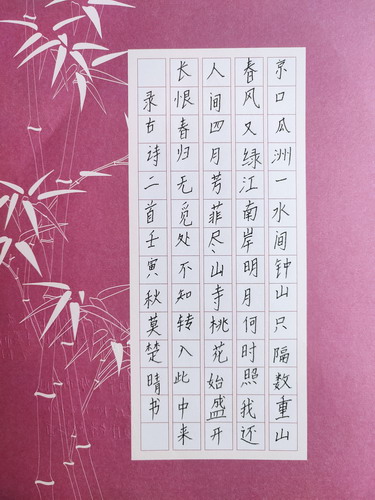 京口瓜洲一水间钟山只隔数重山
春风又绿江南岸明月何时照我还
人间四月芳菲尽山寺桃花始盛开
长恨春归无觅处不知转入此中来
录古诗二首壬寅秋莫楚晴书